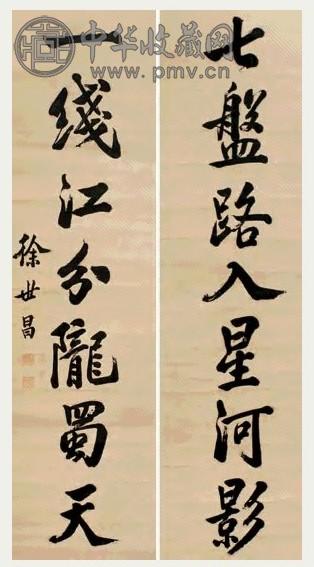 七盤路入星河影
一线江分隴蜀天
徐世昌
中华收藏网
www.pmv.cn